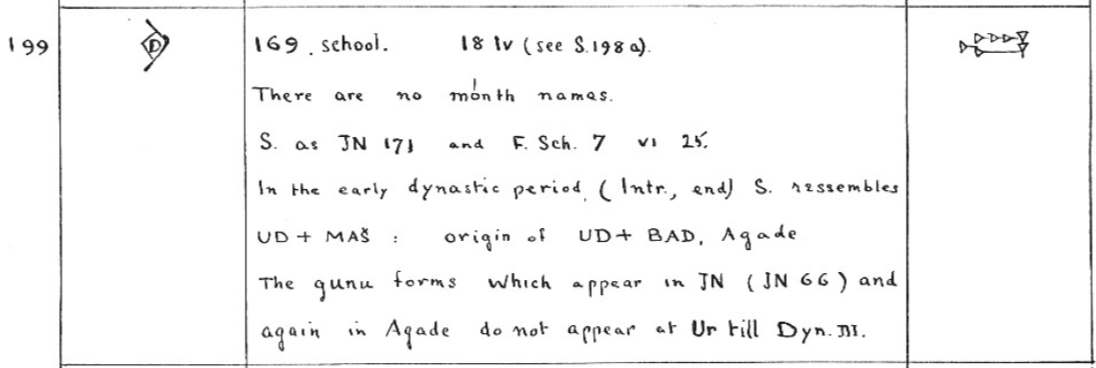 199 169. school. 18 IV (see S.198a).
There are no month names.
S. as JN 171 and F. Sch. 7 VI 25.
In the early dynastic period, (Intr., end) S. ressembles
UD + MAŠ : origin of UD + BAD, Agade
The gunu forms which appear in JN (JN 66) and
again in Agade do not appear at Ur till Dyn. III.